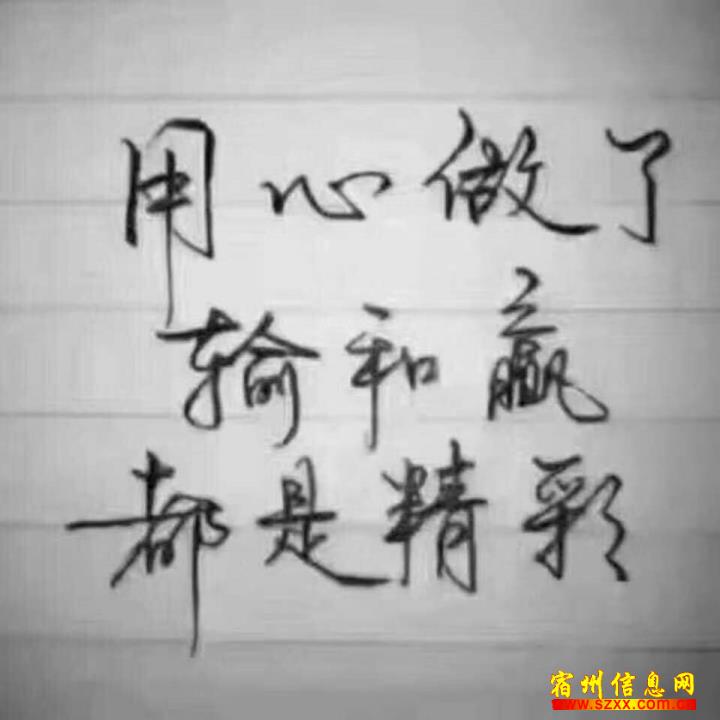 用心做了
输和赢
都是精彩
宿州信息网
www.szxx.com.cn